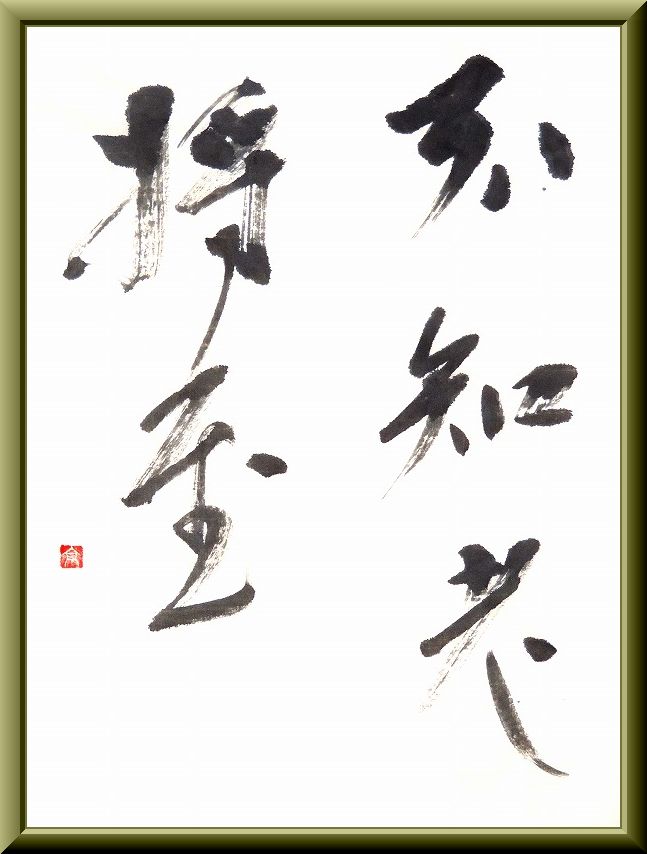 不知老
将至